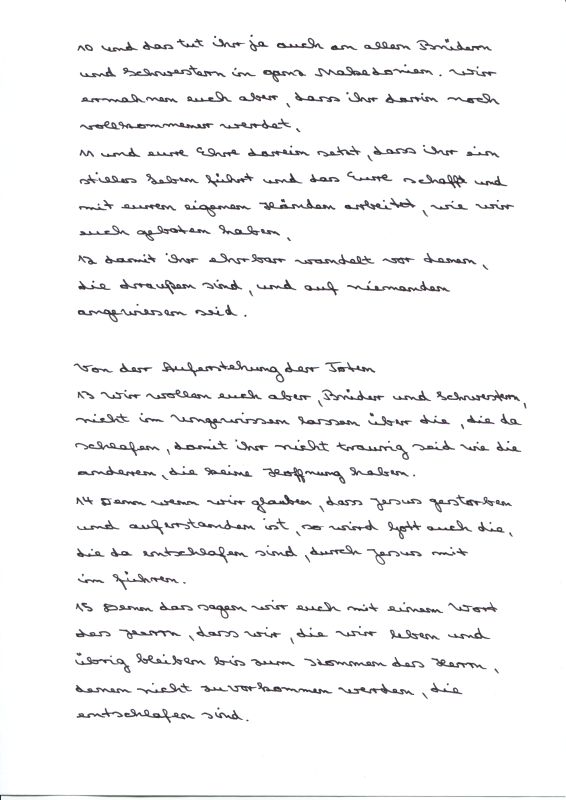 10 und das tut ihr ja auch an allen Brüdern
und Schwestern in ganz Makedonien. Wir
ermahnen euch aber, dass ihr darin noch
vollkommener werdet,
11 und eure Ehre darein setzt, dass ihr ein
stilles Leben führt und das Eure schafft und
mit euren eigenen Händen arbeitet, wie wir
euch geboten haben,
12 damit ihr ehrbar wandelt vor denen,
die draußen sind, und auf niemanden
angewiesen seid.
Von der Auferstehung der Toten
13 Wir wollen euch aber, Brüder und Schwestern,
nicht im Ungewissen lassen über die, die da
schlafen, damit ihr nicht traurig seid wie die
anderen, die keine Hoffnung haben.
14 Denn wenn wir glauben, dass Jesus gestorben
und auferstanden ist, so wird Gott auch die,
die da entschlafen sind, durch Jesus mit
im führen.
15 Denn das sagen wir euch mit einem Wort
des Herrn, dass wir, die wir leben und
übrig bleiben bis zum Kommen des Herrn,
denen nicht zuvorkommen werden, die
entschlafen sind.